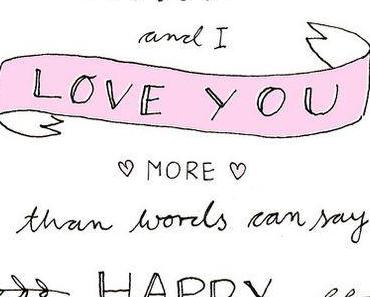 and I
LOVE YOU
MORE
than words can say
HAPPY